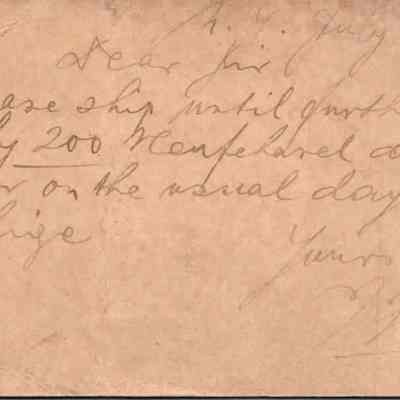 N. Y. July
Dear Sir
ase ship until furth
y 200 Neufchatel
r on the usual day
lige
Yours